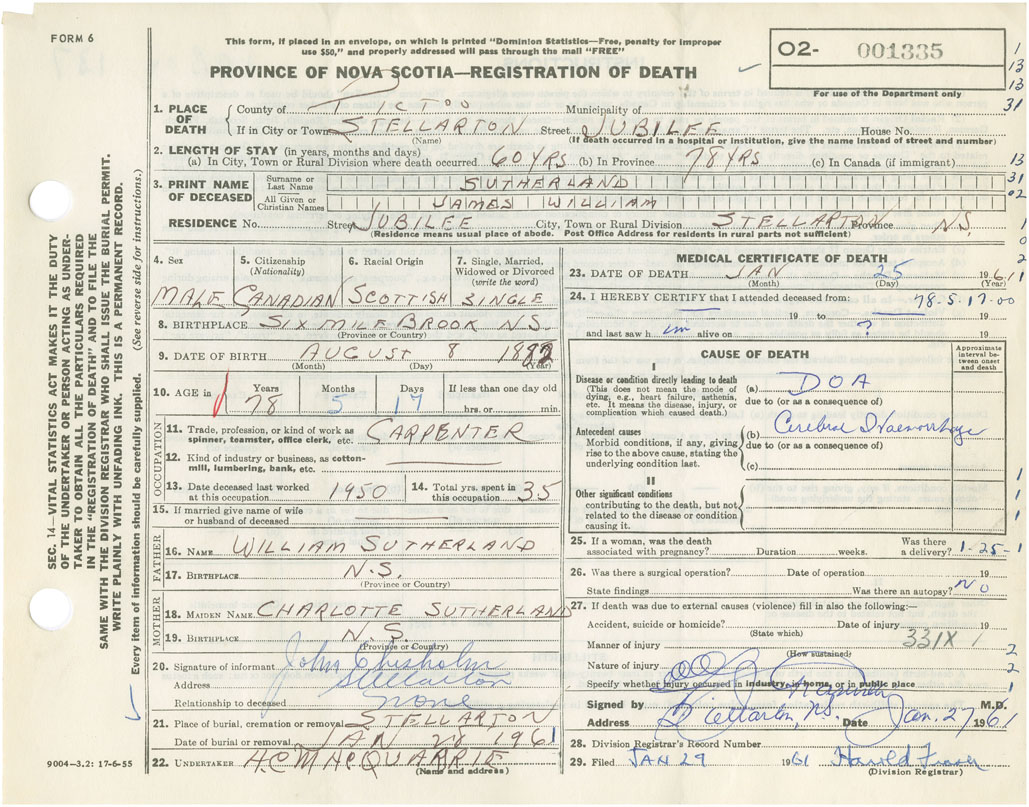 FORM 6
This form, if placed in an envelope, on which is printed "Dominion Statistics—Free, penalty for improper
use $50," and properly addressed will pass through the mail "FREE"
PROVINCE OF NOVA SCOTIA—REGISTRATION OF DEATH
O2- 001335
For use of the Department only
1
13
13
31
1. PLACE OF DEATH
County of PICTOU Municipality of
If in City or Town STELLARTON Street JUBILEE House No.
(Name) (If death occurred in a hospital or institution, give the name instead of street and number)
2. LENGTH OF STAY (in years, months and days)
(a) In City, Town or Rural Division where death occurred 60 YRS (b) In Province 78 YRS (c) In Canada (if immigrant)
13
31
02
3. PRINT NAME OF DECEASED
Surname or Last Name SUTHERLAND
All Given or Christian Names JAMES WILLIAM
RESIDENCE No. Street JUBILEE City, Town or Rural Division STELLARTON Province N.S.
(Residence means usual place of abode. Post Office Address for residents in rural parts not sufficient)
1
0
2
1
SEC. 14—VITAL STATISTICS ACT MAKES IT THE DUTY
OF THE UNDERTAKER OR PERSON ACTING AS UNDER-
TAKER TO OBTAIN ALL THE PARTICULARS REQUIRED
IN THE "REGISTRATION OF DEATH" AND TO FILE THE
SAME WITH THE DIVISION REGISTRAR WHO SHALL ISSUE THE BURIAL PERMIT.
WRITE PLAINLY WITH UNFADING INK. THIS IS A PERMANENT RECORD.
Every item of information should be carefully supplied. (See reverse side for instructions.)
4. Sex
MALE
5. Citizenship
(Nationality)
CANADIAN
6. Racial Origin
SCOTTISH
7. Single, Married,
Widowed or Divorced
(write the word)
SINGLE
8. BIRTHPLACE SIX MILE BROOK N.S.
(Province or Country)
9. DATE OF BIRTH AUGUST 8 1882
(Month) (Day) (Year)
10. AGE in
Years Months Days If less than one day old
78 5 17 hrs. or min.
OCCUPATION
11. Trade, profession, or kind of work as
spinner, teamster, office clerk, etc. CARPENTER
12. Kind of industry or business, as cotton-
mill, lumbering, bank, etc.
13. Date deceased last worked
at this occupation 1950
14. Total yrs. spent in
this occupation 35
15. If married give name of wife
or husband of deceased
FATHER
16. NAME WILLIAM SUTHERLAND
17. BIRTHPLACE N.S.
(Province or Country)
MOTHER
18. MAIDEN NAME CHARLOTTE SUTHERLAND
19. BIRTHPLACE N.S.
(Province or Country)
20. Signature of informant John Chisholm
Address Stellarton
Relationship to deceased none
21. Place of burial, cremation or removal STELLARTON
Date of burial or removal JAN 28 1961
22. UNDERTAKER H.C. MACQUARRIE
(Name and address)
9004—3.2: 17-6-55
MEDICAL CERTIFICATE OF DEATH
23. DATE OF DEATH JAN 25 1961
(Month) (Day) (Year)
24. I HEREBY CERTIFY that I attended deceased from: 78-5-17-00
19 to 19
and last saw h im alive on ? 19
CAUSE OF DEATH
Approximate
interval be-
tween onset
and death
I
Disease or condition directly leading to death
(This does not mean the mode of
dying, e.g., heart failure, asthenia,
etc. It means the disease, injury, or
complication which caused death.)
(a) DOA
due to (or as a consequence of)
Antecedent causes
Morbid conditions, if any, giving
rise to the above cause, stating the
underlying condition last.
(b) Cerebral Haemorrhage
due to (or as a consequence of)
(c)
II
Other significant conditions
contributing to the death, but not
related to the disease or condition
causing it.
1
1
1
25. If a woman, was the death
associated with pregnancy? Duration weeks.
Was there
a delivery? 1-25-1
26. Was there a surgical operation? Date of operation 19
State findings Was there an autopsy? NO
27. If death was due to external causes (violence) fill in also the following:—
Accident, suicide or homicide? Date of injury 19
(State which)
331X 1
Manner of injury
(How sustained)
2
Nature of injury
2
Specify whether injury occurred in industry, in home, or in public place
1
Signed by M.D.
Address Stellarton, N.S. Date Jan. 27/61
28. Division Registrar's Record Number
29. Filed JAN 29 1961 Harold Fraser
(Division Registrar)